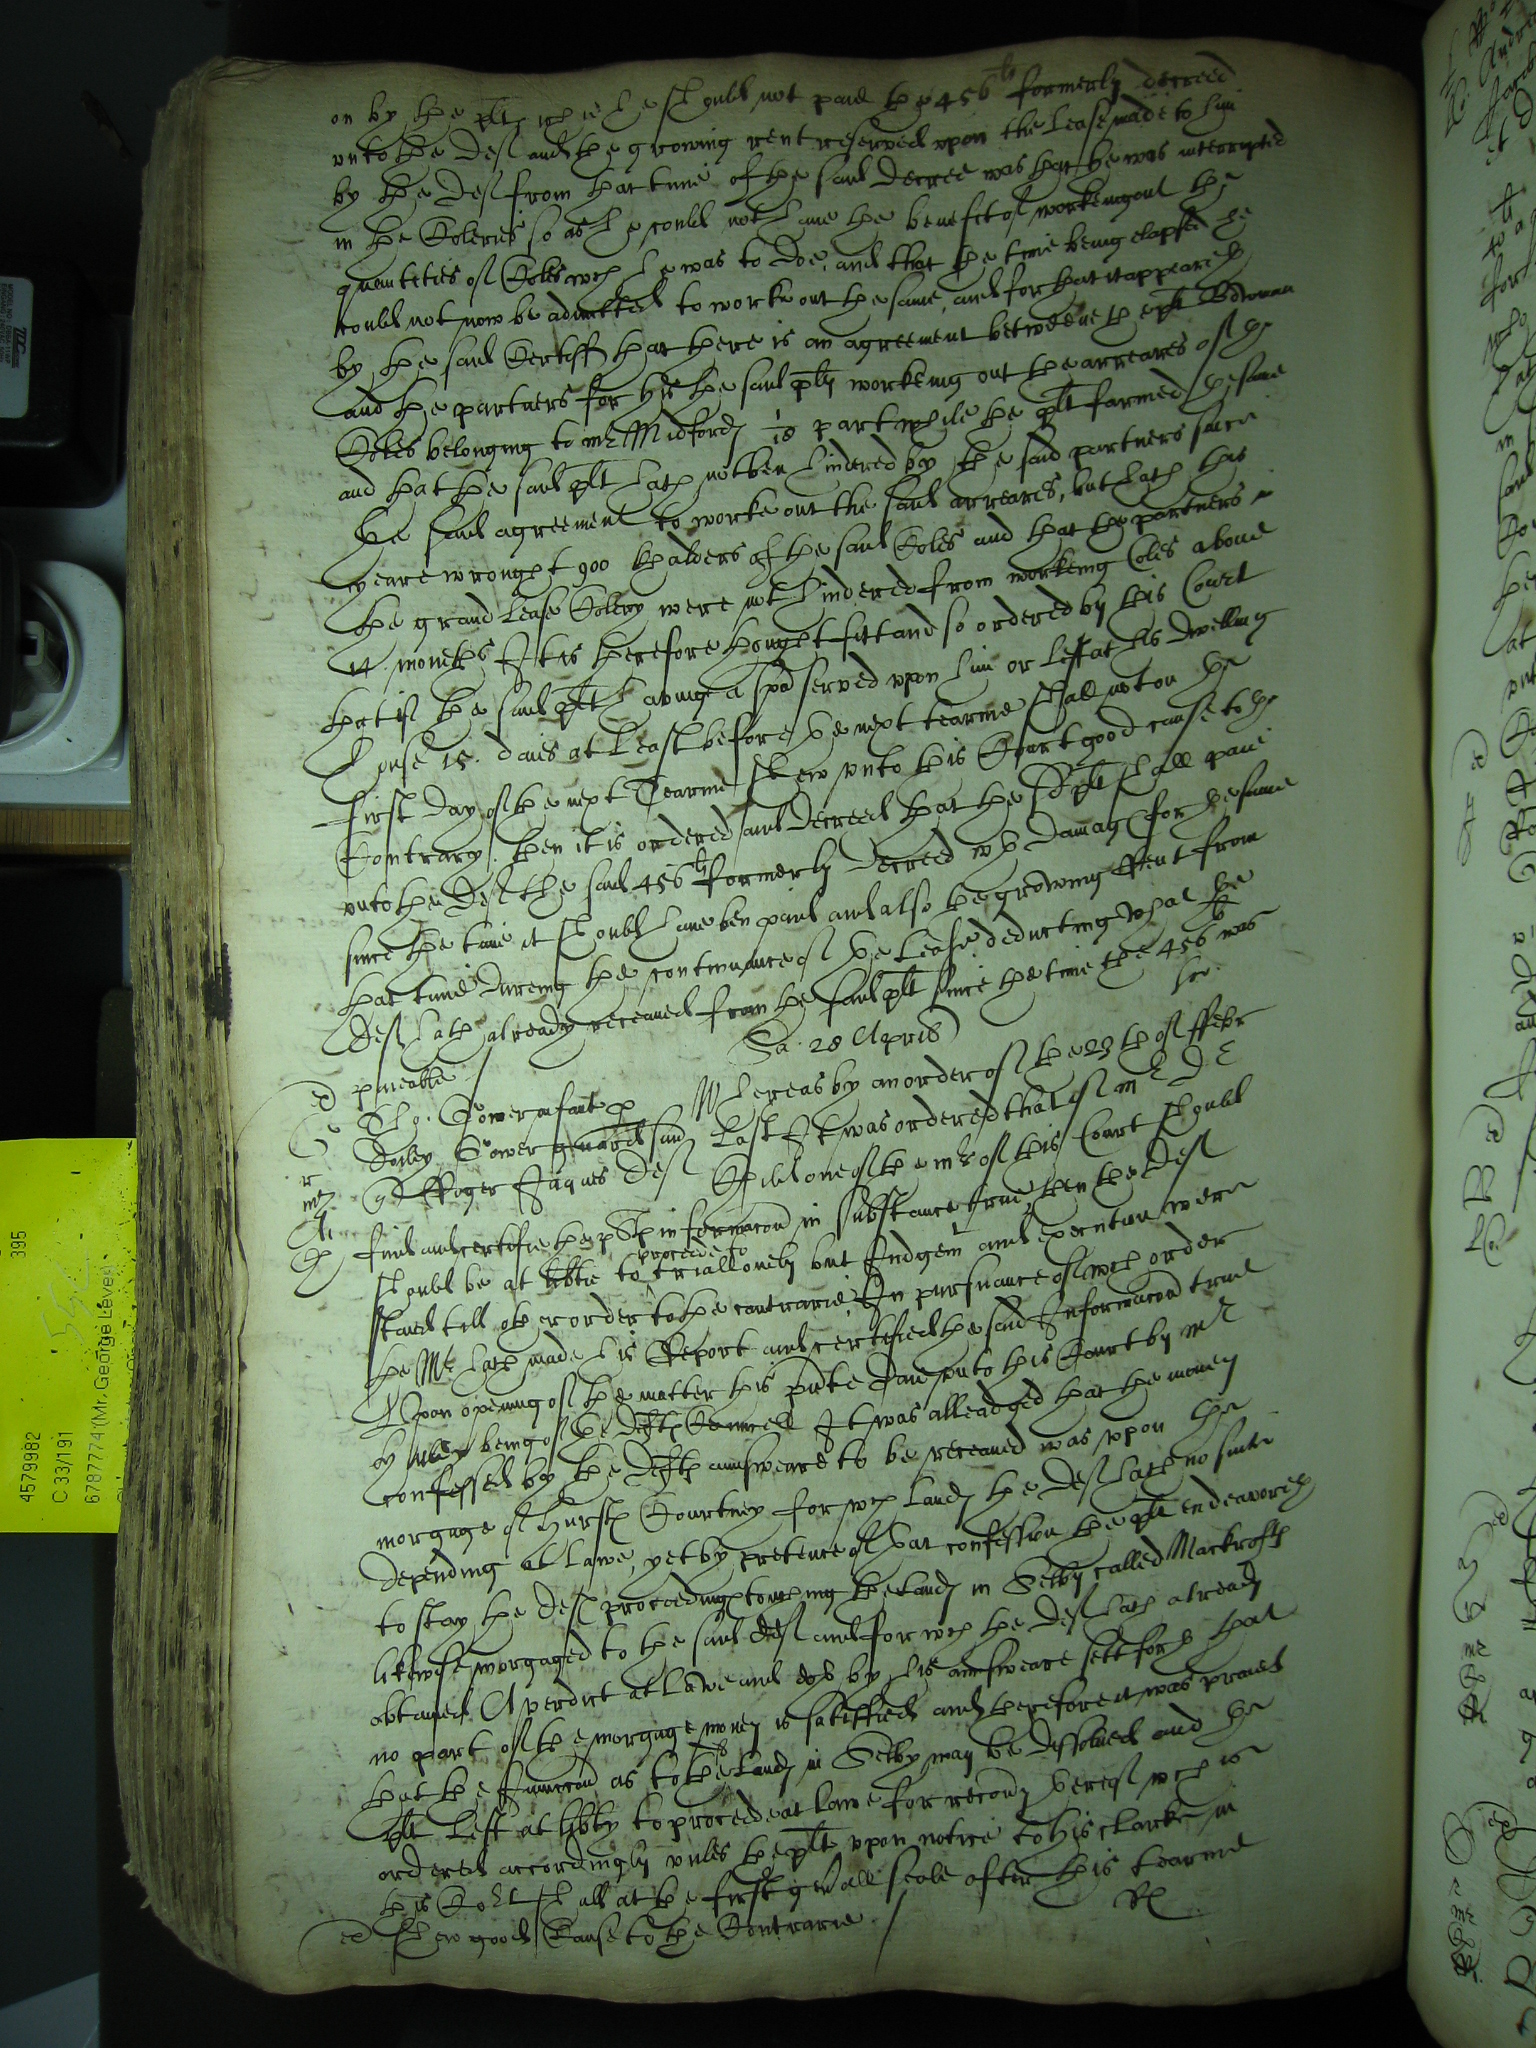 on by the plt why he should not paie the 456li formerly decreed
vnto the Deft and the growing rent reserved vpon the Lease made to him
by the Deft from that time of the said Decree was that he was interrupted
in the Coleries so as he could not haue the benefit of workeing out the
quantities of Coles wch he was to doe, and that the time being elapsed he
could not now be admitted to worke out the same, and for that it appeareth
by the said Certiff that there is an agreement betweene the plt Bowman
and the partners for his the said plts workeing out the arreares of the
Coles belonging to mr Midfords 1/18 part while the plt farmed the same
and that the said plt hath not ben hindered by the said partners since
the said agreement to worke out the said arreares, but hath this
yeare wrought 900 Chalders of the said Coles and that the partners
the grand Lease Colery were not hindered from workeing Coles aboue
14 moneths It is therefore thought fitt and so ordered by this Court
that if the said plt hauinge a spa served vpon him or left at his dwelling
house 15 daies at Least before the next tearme shall not on the
first day of the next Tearme shew vnto this Court good cause to the
Contrary, then it is ordered and Decreed that the sd plt shall paie
vnto the Deft the said 456li formerly decreed wth damages for the same
since the time it should haue ben paid and also the growing Rent from
that time dureing the continuance of the Lease deducting what the
Deft hath already receaued from the said plt since the time the 456li was
paieable
Sa 28 Aprilis
Tho: Sower infant p Whereas by an order of the 23th of ffebr
Doiley Sower guardian Last It was ordered that if mr
qd Roger Jaques Deft one of the mrs of this Court should
find and certifie the plts informacon in substance true, then the Deft
should be at libtie to procede to triall onely but Judgemt and execution were
staied till other order to the contrarie, In pursuance of wch order
the Mr hath made his Report and certified the said Informacon true
Vpon opening of the matter this pñte daie vnto this Court by mr
being of the defts Councell It was alleadged that the money
confessed by the defts answeare to be receaued was vpon the
morgage of hurst Courtney for wch Lands the Deft hath no suite
depending at Lawe, yet by pretence of that confession the plt endeavoreth
to stay the Defts proceedings touching the Lands in Selby called Mackrofts
likewise morgaged to the said Deft and for wch the Deft hath already
obtained A verdict at Lawe and doth by his answeare sett forth that
no part of the morgage money is satisfied and therefore it was praied
that the Iniunccon as to the Lands in Selby may be dissolued and the
plt Left at libtty to procede at Lawe for recouy thereof wch is
ordered accordingly vnles the plt vpon notice to his clarke in
this Cort shall at the first genall seale after this tearme
shew good Cause to the Contrarie
4579982
C 33/191
6787774 (Mr. George Leveset
395